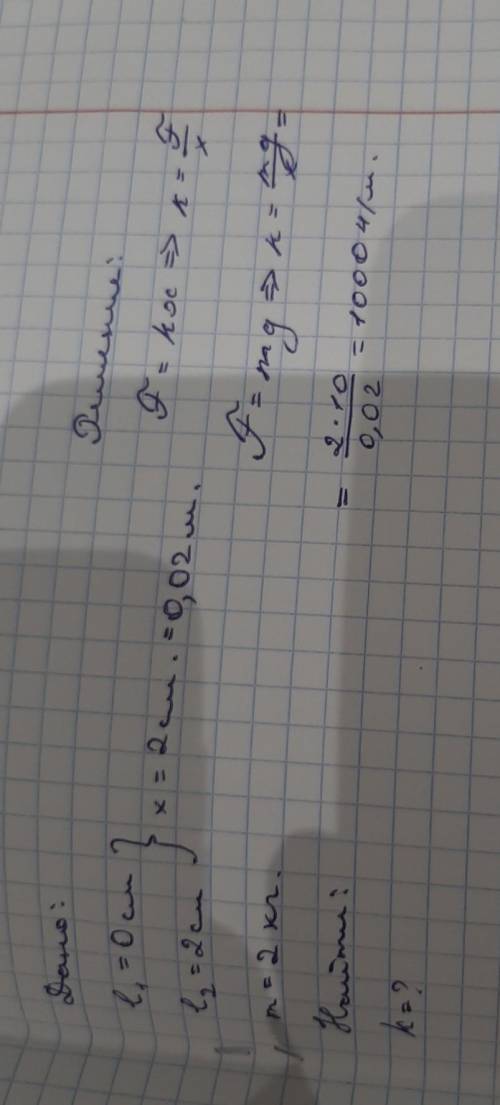 Дано:
l₁ = 0 см } x = 2 см. = 0,02 м.
l₂ = 2 см
m = 2 кг.
Найти:
k = ?
Решение:
F = kx => k = F/x
F = mg => k = mg/x =
= 2·10/0,02 = 1000 Н/м.